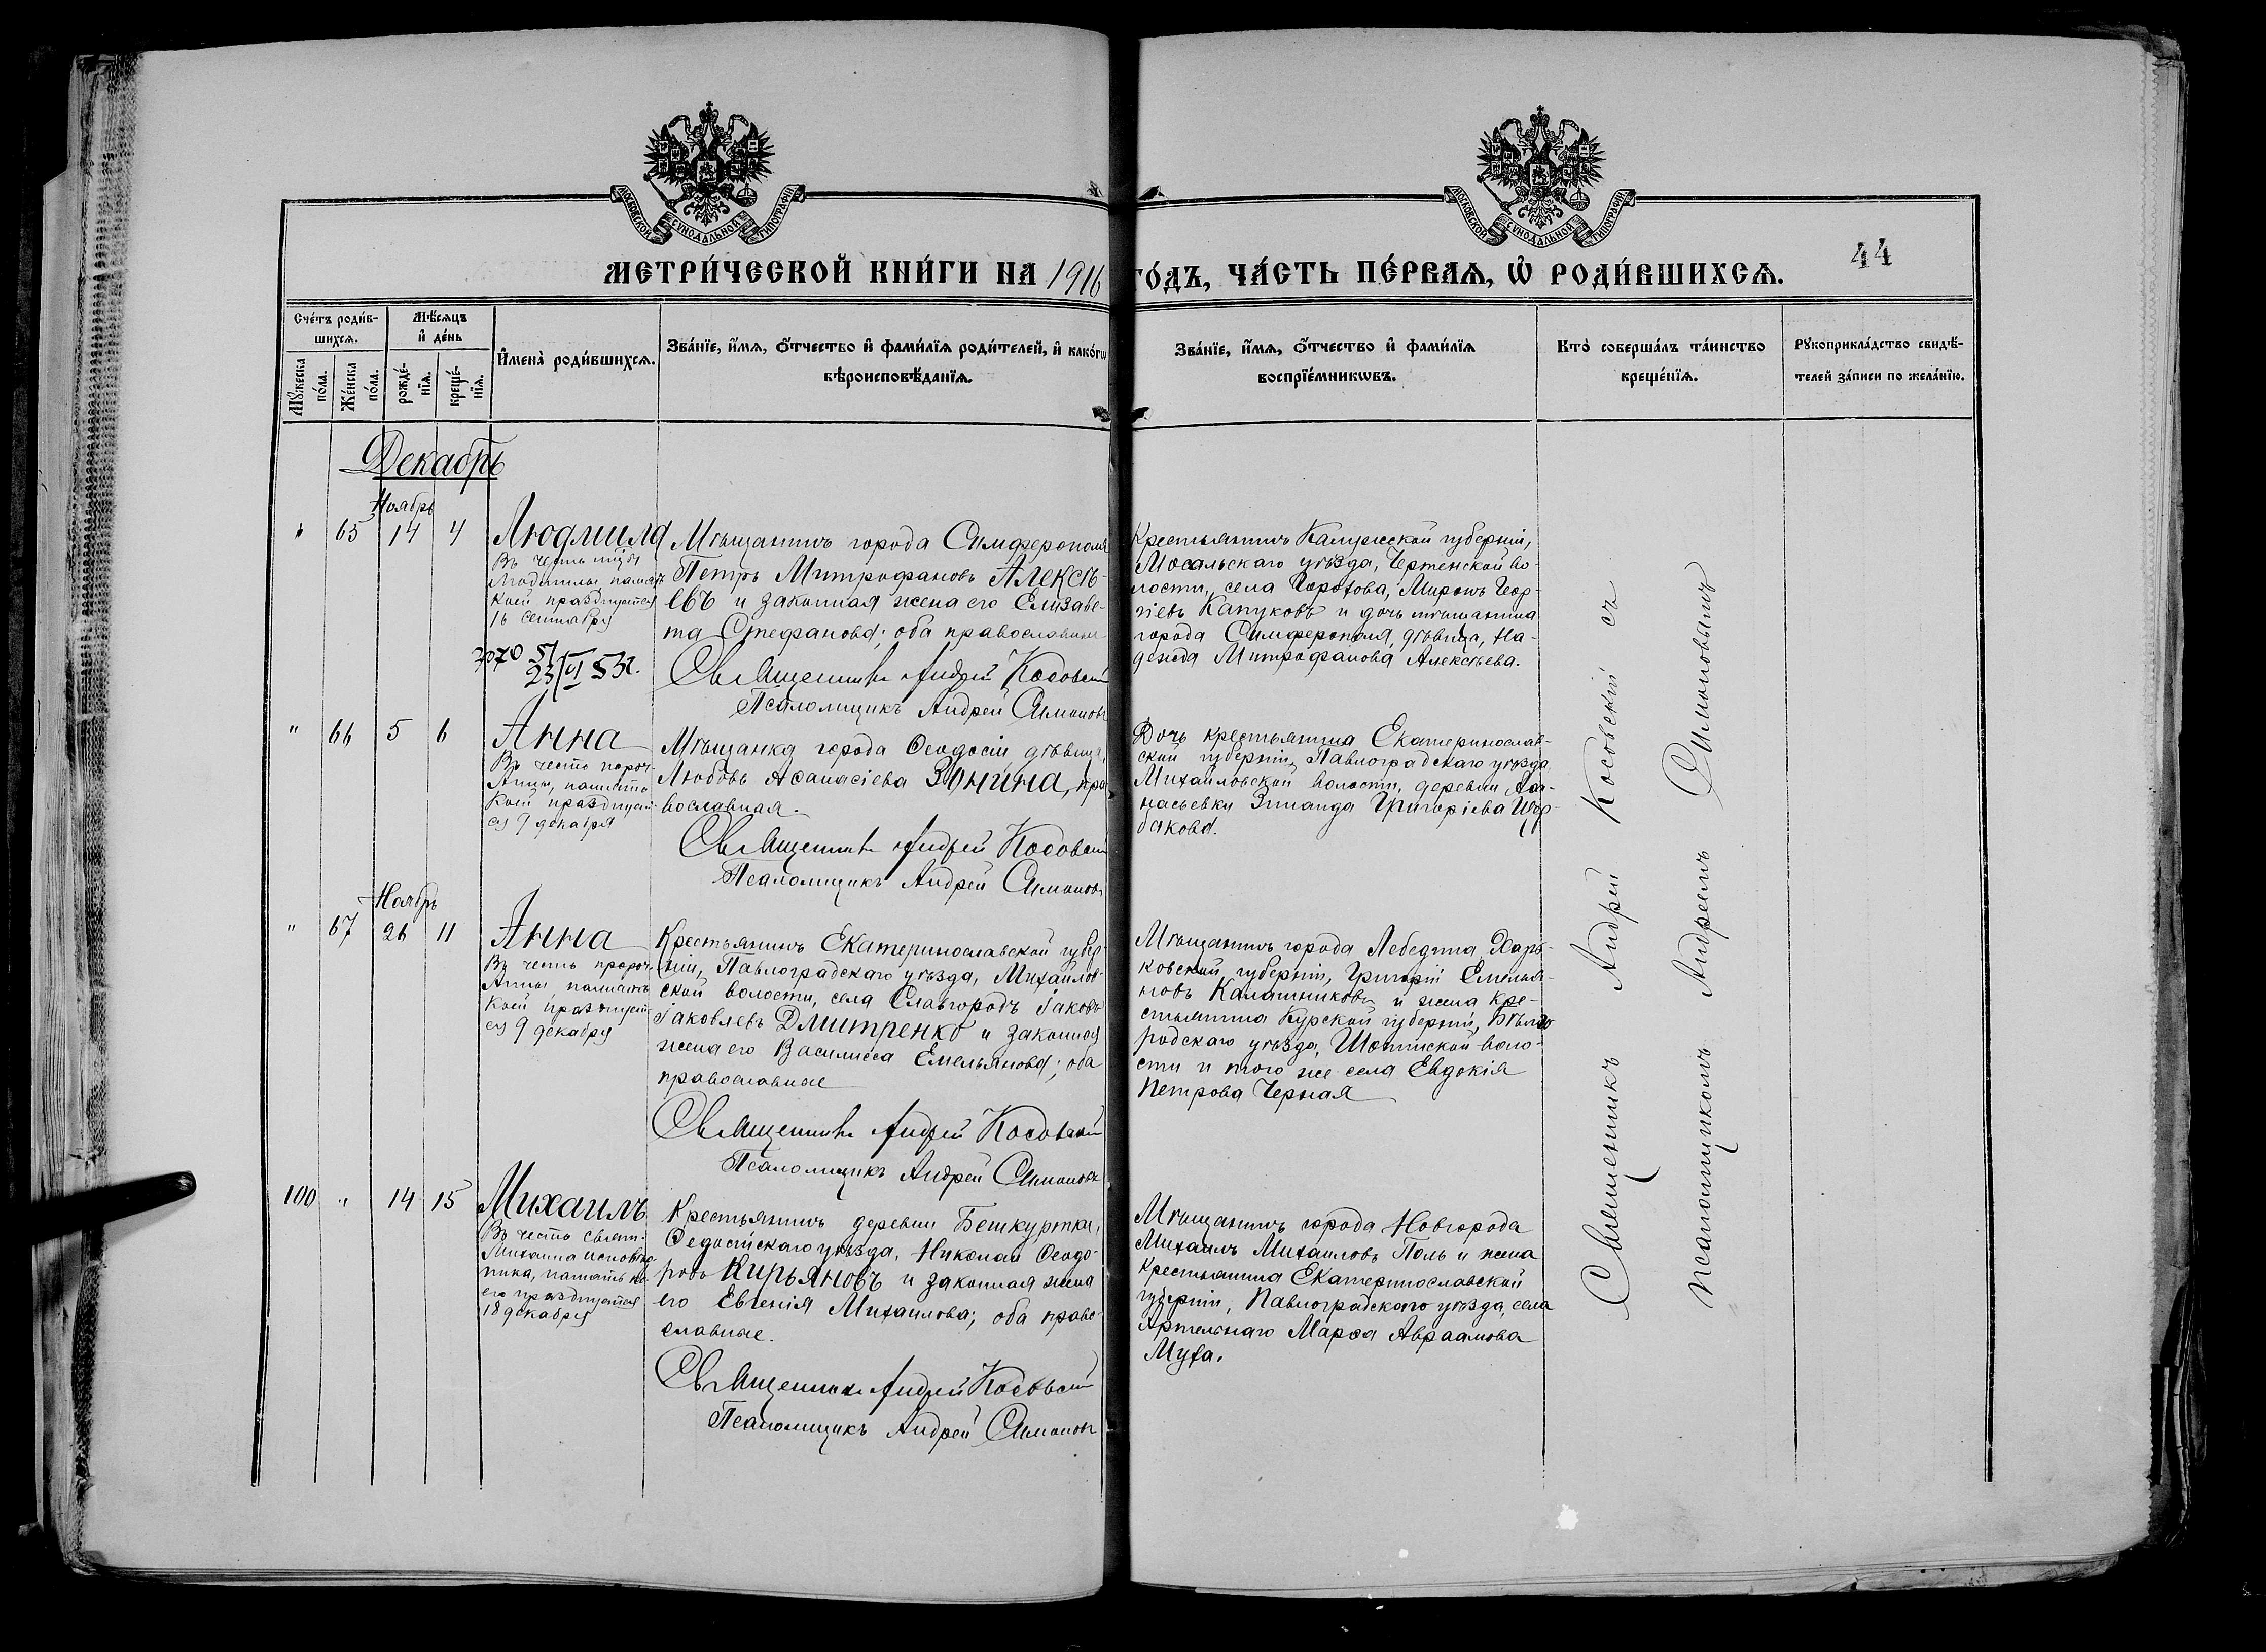 МОСКОВСКОЙ СѴНОДАЛЬНОЙ ТИПОГРАФІИ
МОСКОВСКОЙ СѴНОДАЛЬНОЙ ТИПОГРАФІИ
МЕТРИ́ЧЕСКОЙ КНИ́ГИ НА 1916 ГО́ДЪ, ЧА́СТЬ ПЕ́РВАѦ, Ѡ҆ РОДИ́ВШИХСѦ.
44
Сче́тъ роди́в-
шихсѧ.
Мѣ́сѧцъ
и҆ де́нь
Мꙋ́жеска
по́ла.
Же́нска
по́ла.
рожде́-
нїѧ.
креще́-
нїѧ.
И҆мена̀ роди́вшихсѧ.
Зва́нїе, и҆́мѧ, ѻ҆́тчество и҆ фами́лїѧ роди́телей, и҆ како́гѡ
вѣроисповѣ́данїѧ.
Зва́нїе, и҆́мѧ, ѻ҆́тчество и҆ фами́лїѧ
воспрїе́мникѡвъ.
Кто̀ соверша́лъ та́инство
креще́нїѧ.
Рꙋкоприкла́дство свидѣ́-
телей за́писи по жела́нїю.
Декабрь
Ноябрь
" 65 14 4
Людмила
Въ честь муч.
Людмилы память
коей празднуется
16 сентября
23/VI 53г.
Мѣщанинъ города Симферополя
Петръ Митрофановъ Алексѣ-
евъ и законная жена его Елизаве-
та Стефанова; оба православные
Священникъ Андрей Косовскій
Псаломщикъ Андрей Симоновъ
Крестьянинъ Калужской губерніи,
Мосальскаго уѣзда, Чертенской во-
лости, села Горохова, Миронъ Геор-
гіевъ Капуковъ и дочь мѣщанина
города Симферополя, дѣвица, На-
дежда Митрофанова Алексѣева.
" 66 5 6
Анна
Въ честь прроч.
Анны, память
коей празднует-
ся 9 декабря
Мѣщанка города Ѳеодосіи дѣвица,
Любовь Аѳанасіева Зонина, пра-
вославная.
Священникъ Андрей Косовскій
Псаломщикъ Андрей Симоновъ
Дочь крестьянина Екатеринослав-
ской губерніи, Павлоградскаго уѣзда
Михайловской волости, деревни Аѳа-
насьевки Зинаида Григоріева Щер-
бакова.
Ноябрь
" 67 26 11
Анна
Въ честь пророч.
Анны память
коей празднует-
ся 9 декабря
Крестьянинъ Екатеринославской губер-
ніи, Павлоградскаго уѣзда, Михайлов-
ской волости, села Славгородъ Іаковъ
Іаковлевъ Дмитренко и законная
жена его Василисса Емельянова; оба
православные
Священникъ Андрей Косовскій
Псаломщикъ Андрей Симоновъ
Мѣщанинъ города Лебедина, Харь-
ковской губерніи, Григорій Емелья-
новъ Калашниковъ и жена кре-
стьянина Курской губерніи, Бѣлго
родскаго уѣзда, Шопинской воло-
сти и того же села Евдокія
Петрова Черная
100 " 14 15
Михаилъ
Въ честь свят.
Михаила исповѣд-
ника, память ко-
его празднуется
18 декабря
Крестьянинъ деревни Бешкуртка,
Ѳедосійскаго уѣзда, Николай Ѳеодо-
ровъ Кирьяновъ и законная жена
его Евгенія Михаилова; оба право-
славные.
Священникъ Андрей Косовскій
Псаломщикъ Андрей Симоновъ
Мѣщанинъ города Новгорода
Михаилъ Михаиловъ Поль и жена
крестьянина Екатеринославской
губерніи, Павлоградскаго уѣзда, села
Артельнаго Марѳа Авраамова
Муха.
Священникъ Андрей Косовскій съ
псаломщикомъ Андреемъ Симоновымъ